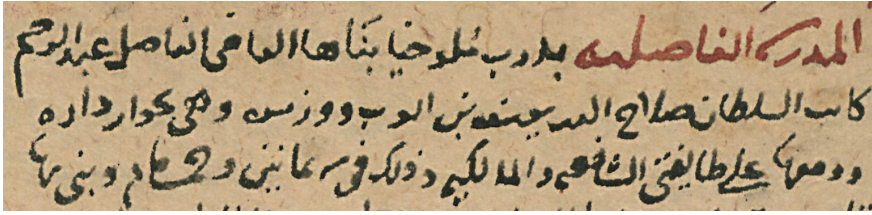 المدرسه الفاضليه بدرب ملوخيا بناها القاضى الفاضل عبد الرحيم
كاتب السلطان صلاح الدين يوسف بن ايوب ووزيره وهى بجوار داره
ووقفها على طايفتى الشافعيه والمالكيه وذلك فى سنه ثمانين وخمسمايه وبنى بها